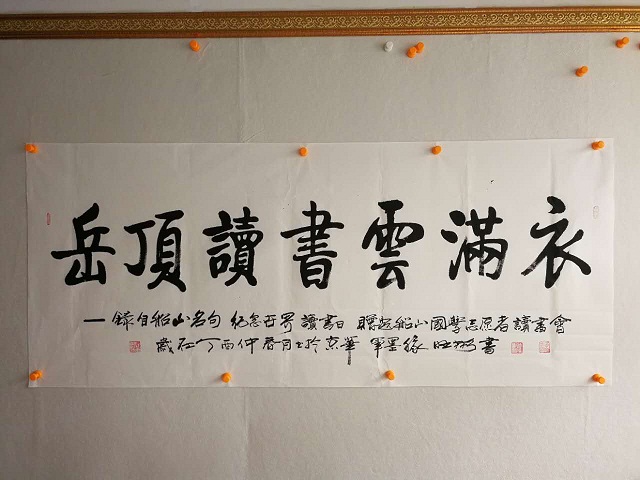 岳頂讀書雲滿衣
一錄自船山名句 紀念世界讀書日 聯起船山國學志愿者讀書會
歲在丁酉仲春月 於京華 軍墨緣 書